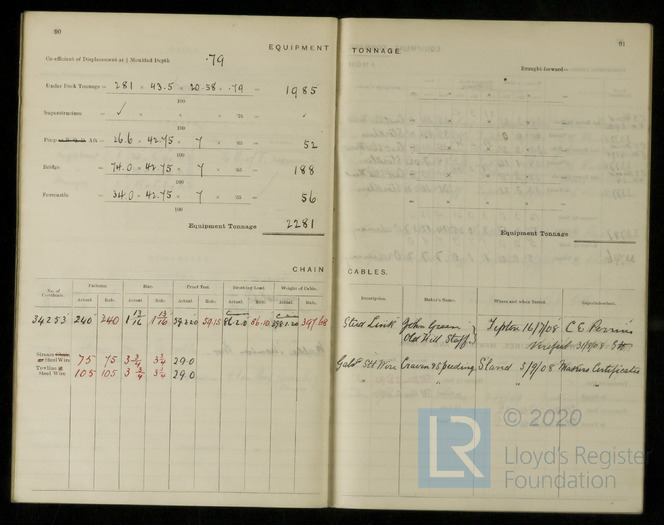 90
EQUIPMENT
Co-efficient of Displacement at ¾ Moulded Depth .79
Under Deck Tonnage = 281 × 43.5 × 20.58 × .79 = 1985
100
Superstructure = ✓ × × × .75 =
100
Aft = 26.6 × 42.75 × 7 × = 52
100
Bridge = 74.0 × 42.75 × 7 × = 188
100
Forecastle = 34.0 × 42.75 × 7 × = 56
100
Equipment Tonnage 2281
CHAIN
No. of Certificate. Fathoms. Size. Proof Test. Breaking Load. Weight of Cable.
Actual. Rule. Actual. Rule. Actual. Rule. Actual. Rule. Actual. Rule.
34253 240 240 1 13/16 1 13/16 59.15 86.10
Stream Steel Wire 75 75 3 3/4 3 3/4 29.0
Towline Steel Wire 105 105 3 3/4 3 3/4 29.0
91
TONNAGE
Brought forward =
Equipment Tonnage
CABLES.
Description. Maker's Name. Where and when Tested. Superintendent.
Stud Link John Green Tipton 16/7/08 C.E. Perrins
Old Hill Staff. Verified 31/8/08
Galvd Stl Wire Craven & Speeding S'land 3/9/08 Makers Certificates
© 2020
LR
Lloyd's Register
Foundation